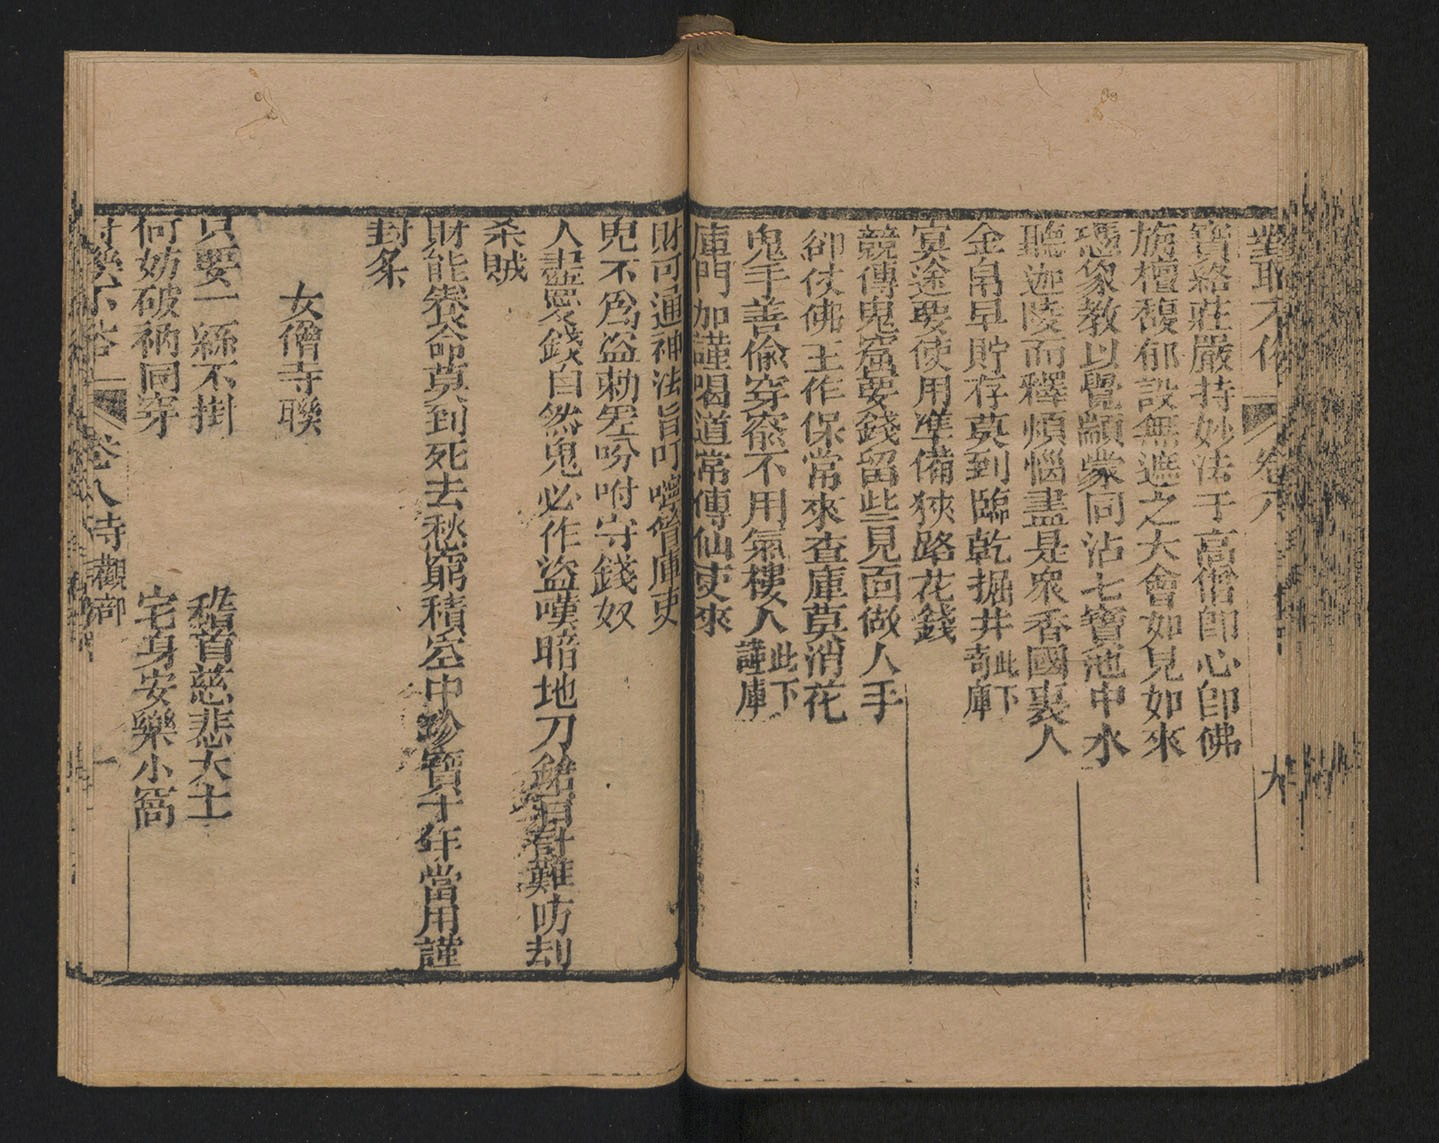 卷八
九
寶絡莊嚴持妙法于高僧即心即佛
旃檀馥郁設無遮之大會如見如來
憑象教以覺顓蒙同沾七寶蓮中水
聽迦陵而釋煩惱盡是衆香國裏人
金帛早貯存莫到臨乾掘井此下寄庫
冥途要使用準備狹路花錢
競傳鬼窩要錢留些見面做人手
卻仗佛王作保常來查庫莫消花
鬼手善偷穿窬不用氣樓人此下謹庫
庫門加謹喝道常傳仙吏來
財可通神法旨叮嚀管庫吏
鬼不爲盜勅差吩咐守錢奴
人盡愛錢自然鬼必作盜嘆暗地刀難防刦
杀賊
財能養命莫到死去愁窮積空中珍寶十年當用謹
封条
女僧寺聯
只要一絲不掛　稽首慈悲大士
何妨破衲同穿　宅身安樂小窩
卷八寺觀
一